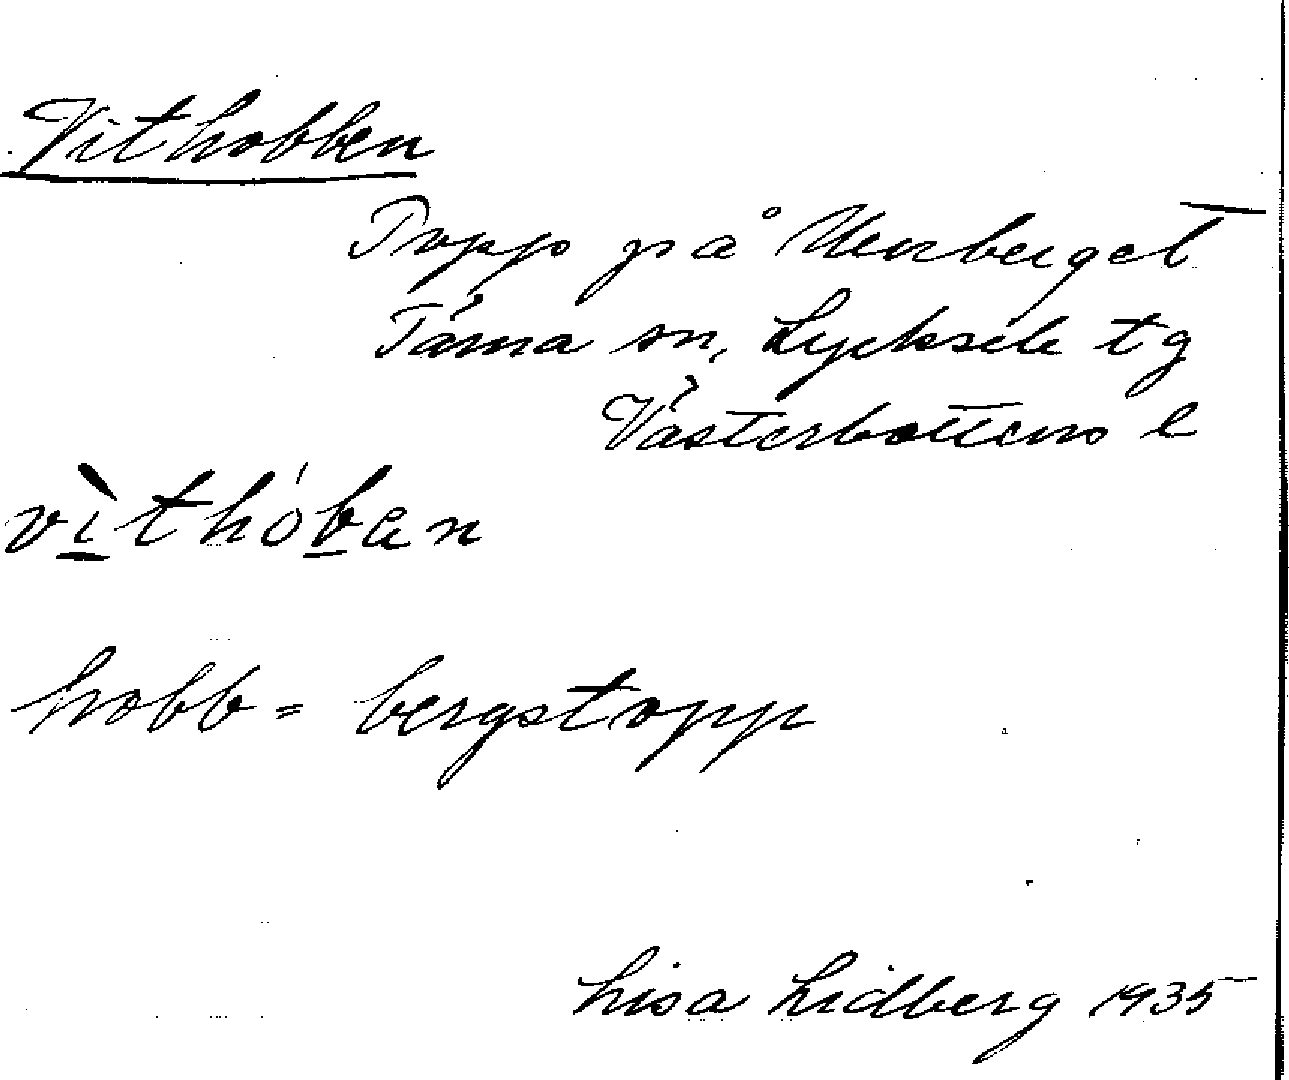 Vithobben
Topp på Umberget
Tärna sn, Lycksele tg
Västerbottens l
vìthóban
hobb = bergstopp
Lisa Lidberg 1935